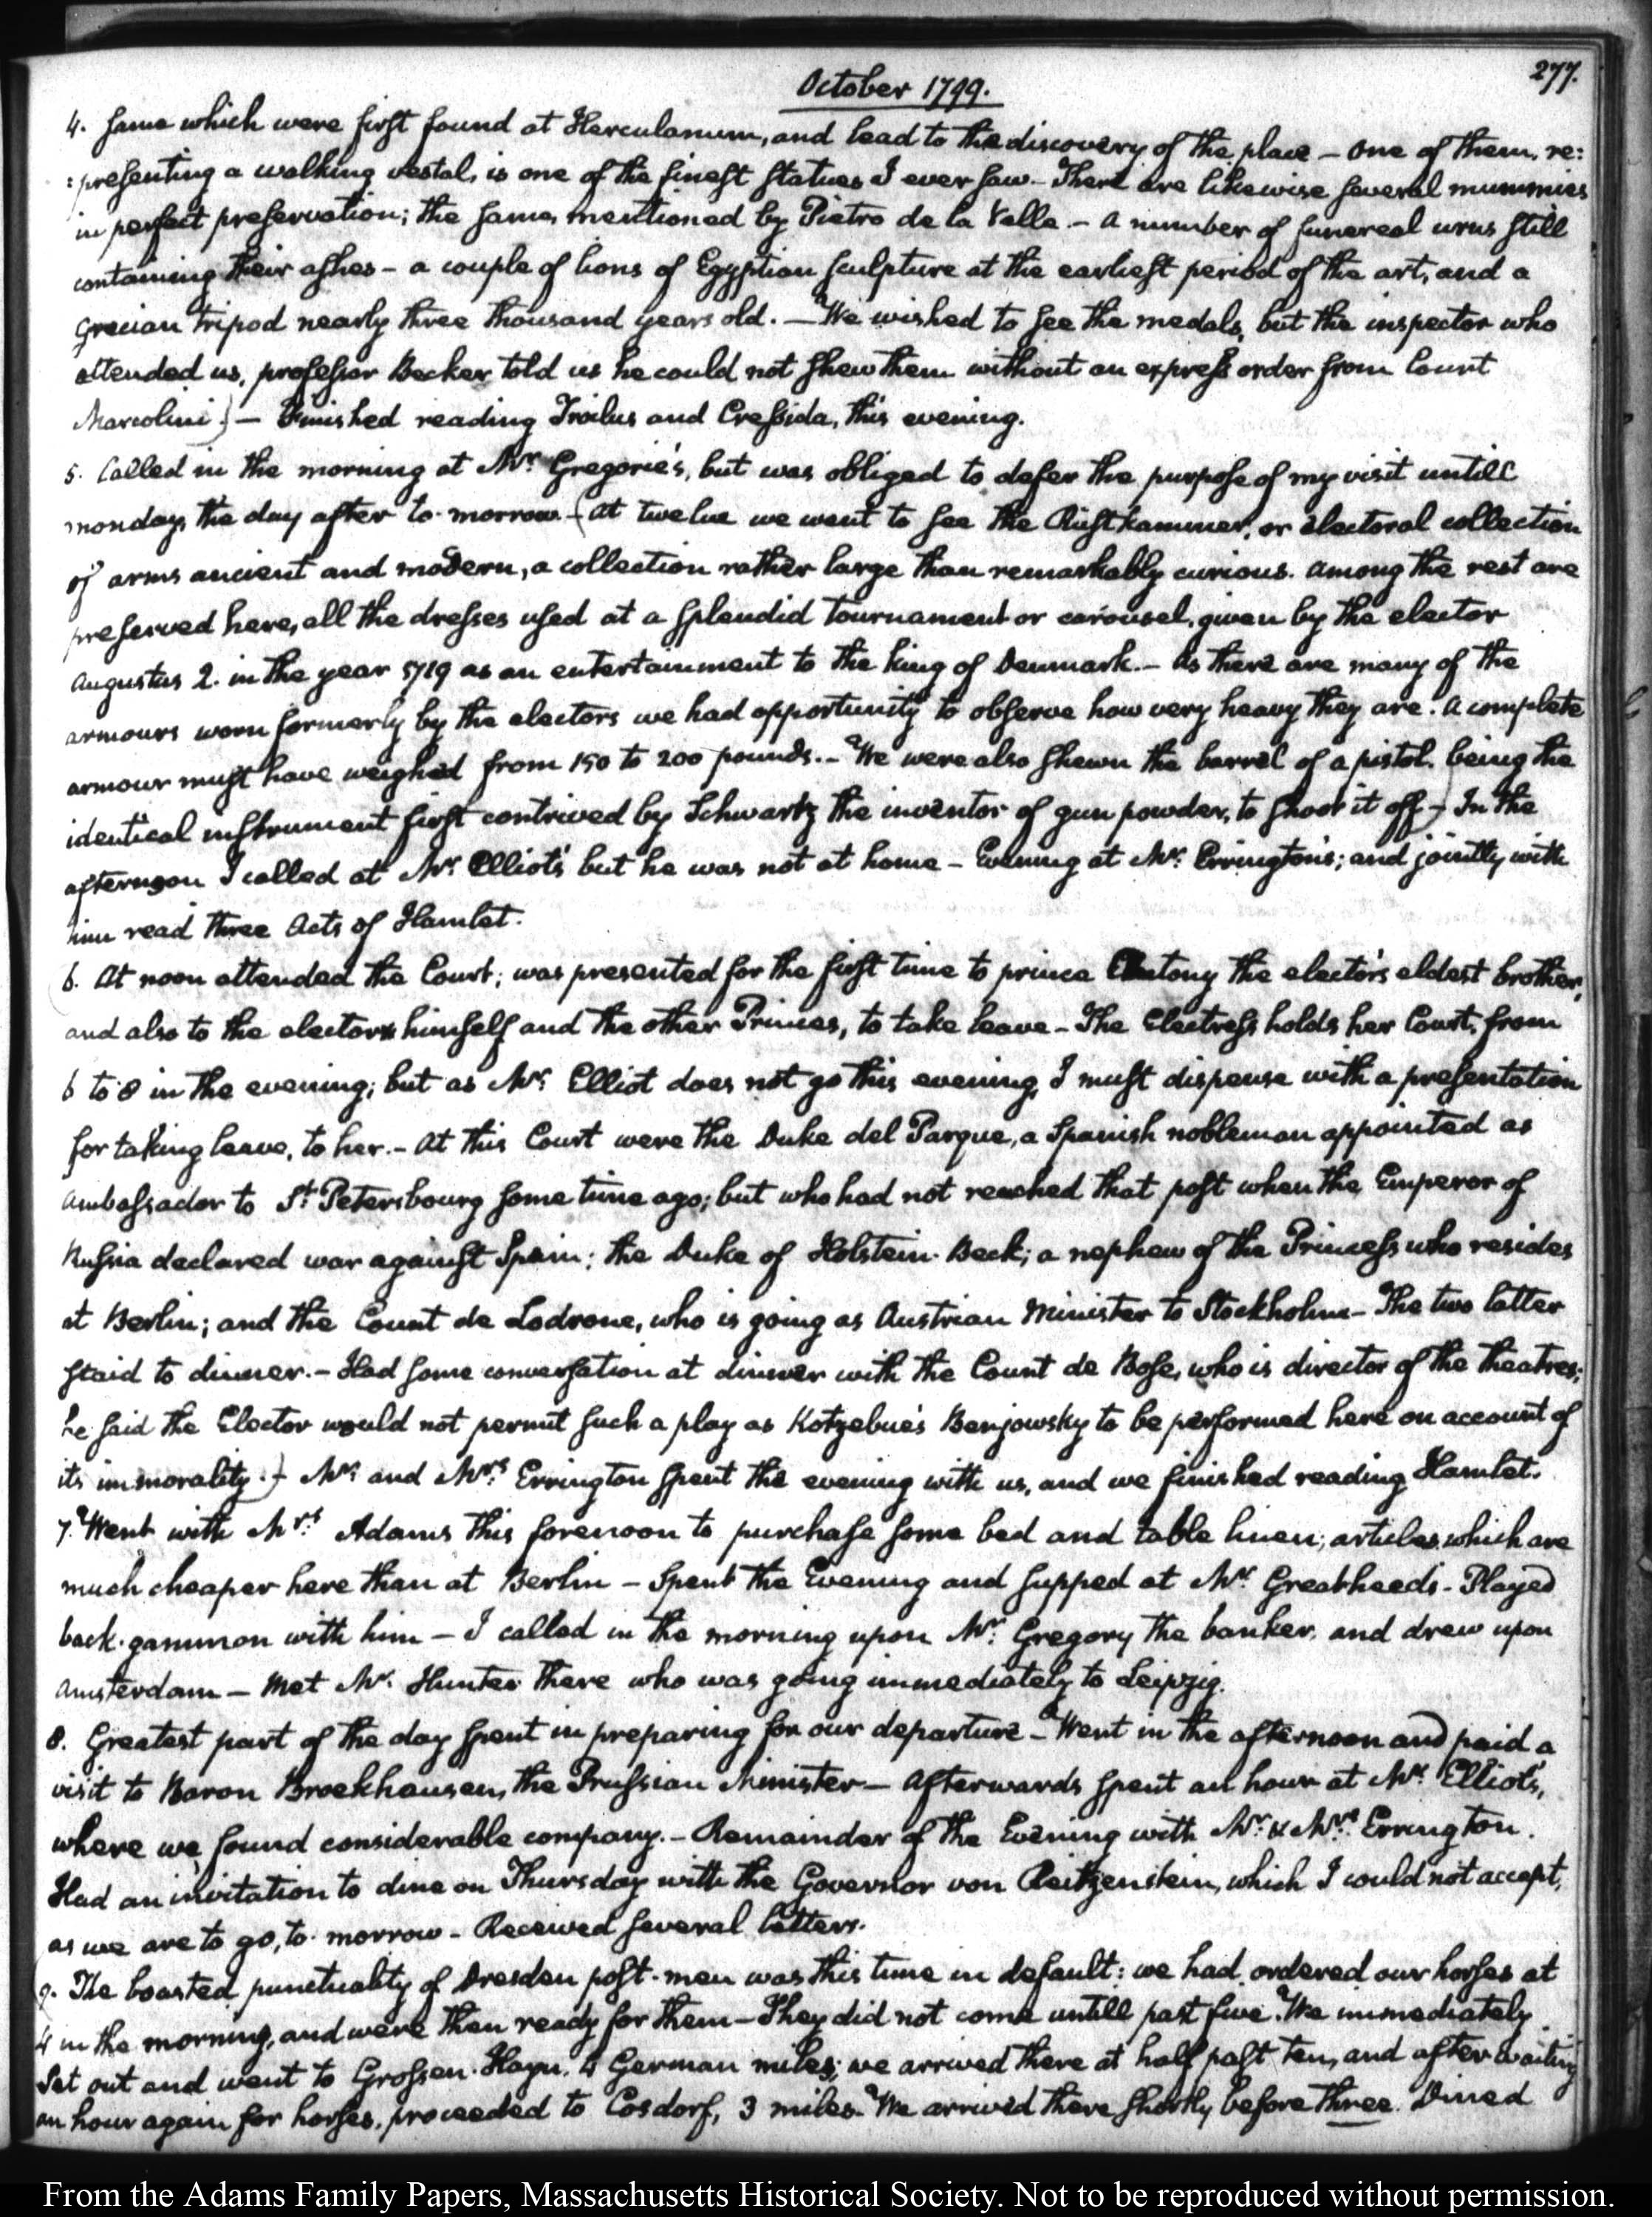 277.
October 1799.
4. same which were first found at Herculanum, and lead to the discovery of the place – One of them, re:
:presenting a walking vestal, is one of the finest statues I ever saw – There are likewise several mummies
in perfect preservation; the same, mentioned by Pietro de la Valle. – A number of funereal urns still
containing their ashes – a couple of lions of Egyptian sculpture at the earliest period of the art, and a
Grecian tripod nearly three thousand years old. – We wished to see the medals, but the inspector who
attended us, professor Becker told us he could not shew them without an express order from Count
Marcolini) – Finished reading Troilus and Cressida, this evening.
5. Called in the morning at Mr. Gregorie's, but was obliged to defer the purpose of my visit untill
monday, the day after to-morrow – (At twelve we went to see the Rustkammer, or electoral collection
of arms ancient and modern, a collection rather large than remarkably curious. Among the rest are
preserved here, all the dresses used at a splendid tournament or carousel, given by the elector
Augustus 2. in the year 1719 as an entertainment to the king of Denmark. – As there are many of the
armours worn formerly by the electors we had opportunity to observe how very heavy they are. A complete
armour must have weighed from 150 to 200 pounds. – We were also shewn the barrel of a pistol, being the
identical instrument first contrived by Schwartz the inventor of gun powder, to shoot it off) – In the
afternoon I called at Mr. Elliot's but he was not at home – Evening at Mr. Errington's; and jointly with
him read three Acts of Hamlet.
(6. At noon attended the Court; was presented for the first time to prince Antony the elector's eldest brother,
and also to the elector himself and the other Princes, to take leave – The Electress holds her Court, from
6 to 8 in the evening; but as Mr. Elliot does not go this evening, I must dispense with a presentation
for taking leave, to her. – At this Court were the Duke del Parque, a Spanish nobleman appointed as
ambassador to St. Petersbourg some time ago; but who had not reached that post when the Emperor of
Russia declared war against Spain; the Duke of Holstein-Beck; a nephew of the Princess who resides
at Berlin; and the Count de Lodrone, who is going as Austrian Minister to Stockholm – The two latter
staid to dinner. – Had some conversation at dinner with the Count de Bose, who is director of the theatres;
he said the Elector would not permit such a play as Kotzebue's Benjowsky to be performed here on account of
its immorality.) – Mr. and Mrs. Errington spent the evening with us, and we finished reading Hamlet.
7. Went with Mrs. Adams this forenoon to purchase some bed and table linen; articles, which are
much cheaper here than at Berlin – Spent the Evening and supped at Mr. Greatheeds – Played
back-gammon with him – I called in the morning upon Mr. Gregory the banker, and drew upon
Amsterdam – Met Mr. Hunter there who was going immediately to Leipzig.
8. Greatest part of the day spent in preparing for our departure – Went in the afternoon and paid a
visit to Baron Brockhausen, the Prussian Minister – Afterwards spent an hour at Mr. Elliot's,
where we found considerable company. – Remainder of the Evening with Mr. & Mrs. Errington.
Had an invitation to dine on Thursday with the Governor von Reitzenstein, which I could not accept,
as we are to go, to-morrow – Received several letters.
(9. The boasted punctuality of Dresden post-men was this time in default: we had ordered our horses at
4 in the morning, and were then ready for them – They did not come untill past five. We immediately
set out and went to Grossen-Hayn, 4 German miles; we arrived there at half past ten, and after waiting
an hour again for horses, proceeded to Cosdorf, 3 miles. We arrived there shortly before three. Dined
From the Adams Family Papers, Massachusetts Historical Society. Not to be reproduced without permission.